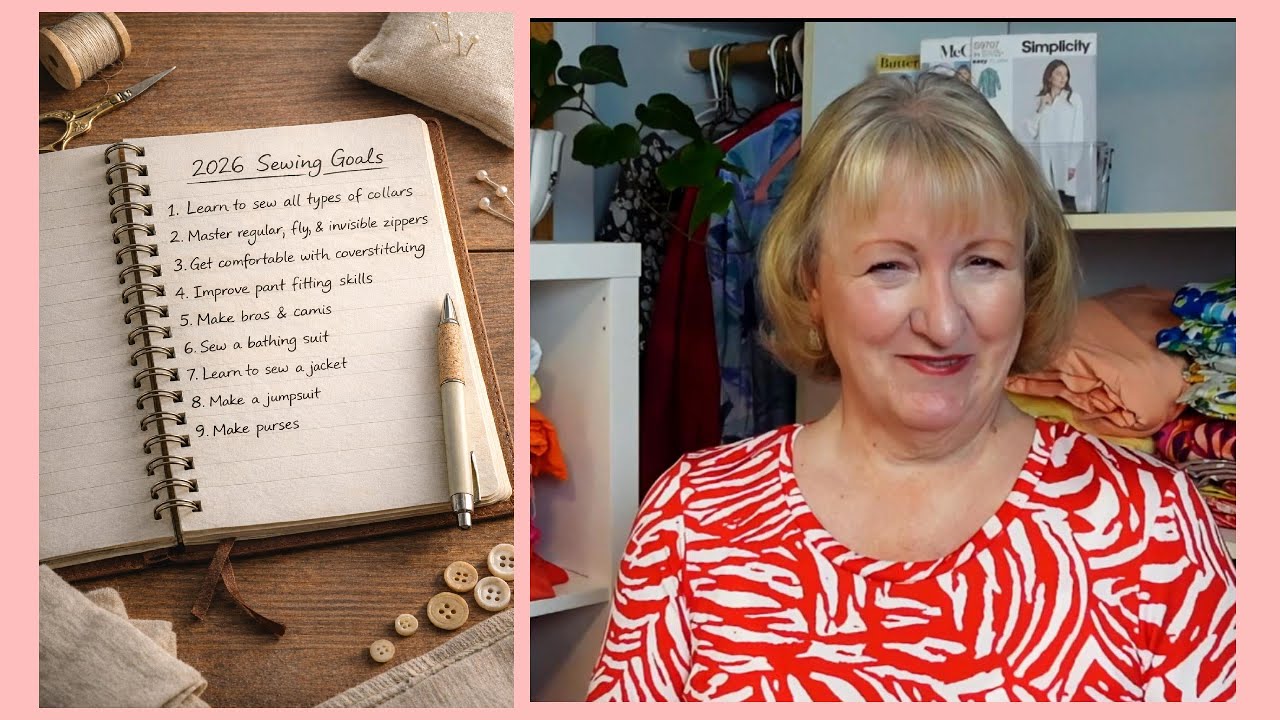 2026 Sewing Goals
1. Learn to sew all types of collars
2. Master regular, fly, & invisible zippers
3. Get comfortable with coverstitching
4. Improve pant fitting skills
5. Make bras & camis
6. Sew a bathing suit
7. Learn to sew a jacket
8. Make a jumpsuit
9. Make purses
Butter
McC
S9707
easy
Simplicity